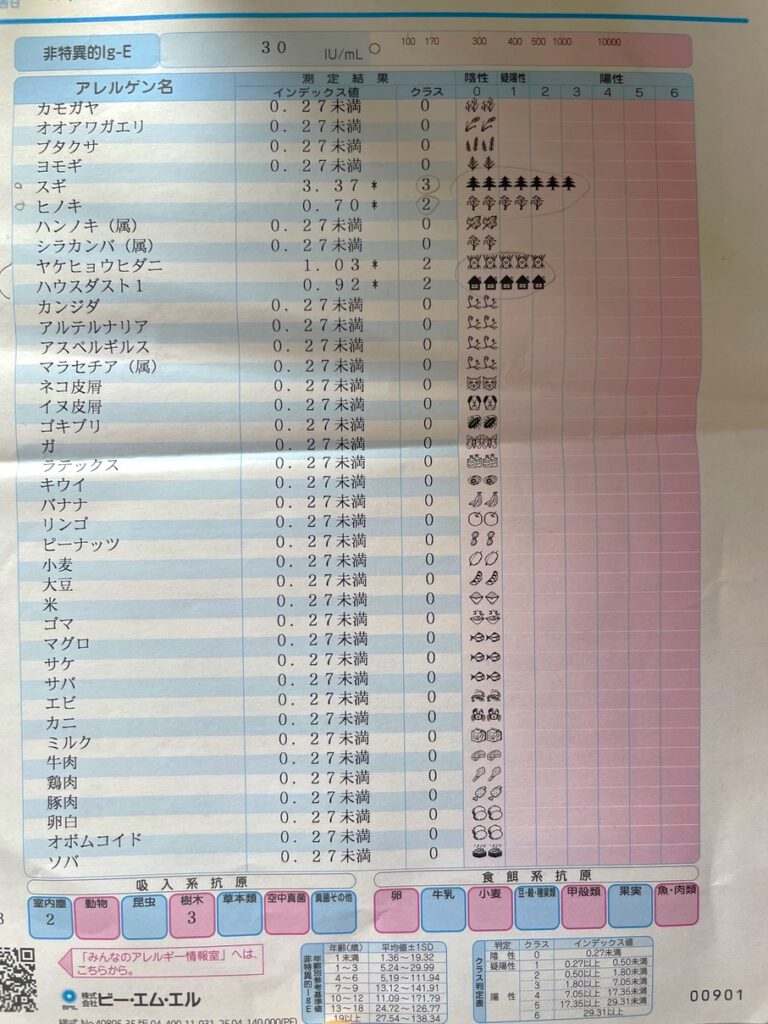 非特異的Ig-E 30 IU/mL 100 170 300 400 500 1000 10000
アレルゲン名 測定結果 陰性 疑陽性 陽性
インデックス値 クラス 0 1 2 3 4 5 6
カモガヤ 0.27未満 0
オオアワガエリ 0.27未満 0
ブタクサ 0.27未満 0
ヨモギ 0.27未満 0
スギ 3.37 * 3
ヒノキ 0.70 * 2
ハンノキ(属) 0.27未満 0
シラカンバ(属) 0.27未満 0
ヤケヒョウヒダニ 1.03 * 2
ハウスダスト1 0.92 * 2
カンジダ 0.27未満 0
アルテルナリア 0.27未満 0
アスペルギルス 0.27未満 0
マラセチア(属) 0.27未満 0
ネコ皮屑 0.27未満 0
イヌ皮屑 0.27未満 0
ゴキブリ 0.27未満 0
ガ 0.27未満 0
ラテックス 0.27未満 0
キウイ 0.27未満 0
バナナ 0.27未満 0
リンゴ 0.27未満 0
ピーナッツ 0.27未満 0
小麦 0.27未満 0
大豆 0.27未満 0
米 0.27未満 0
ゴマ 0.27未満 0
マグロ 0.27未満 0
サケ 0.27未満 0
サバ 0.27未満 0
エビ 0.27未満 0
カニ 0.27未満 0
ミルク 0.27未満 0
牛肉 0.27未満 0
鶏肉 0.27未満 0
豚肉 0.27未満 0
卵白 0.27未満 0
オボムコイド 0.27未満 0
ソバ 0.27未満 0
吸入系抗原 食餌系抗原
室内塵 動物 昆虫 樹木 草本類 空中真菌 真菌その他 卵 牛乳 小麦 豆・穀・種実類 甲殻類 果実 魚・肉類
2 3
「みんなのアレルギー情報室」へは、
こちらから。
BML 株式会社 ビー・エム・エル
年齢別参考基準値 非特異的IgE
年齢(歳) 平均値±1SD
1未満 1.36~19.32
1~3 5.24~29.99
4~6 5.19~111.94
7~9 13.12~141.91
10~12 11.09~171.79
13~18 24.72~126.77
19以上 27.54~138.34
クラス判定表
判定 クラス インデックス値
陰性 0 0.27未満
疑陽性 1 0.27以上 0.50未満
陽性 2 0.50以上 1.80未満
3 1.80以上 7.05未満
4 7.05以上 17.35未満
5 17.35以上 29.31未満
6 29.31以上
00901